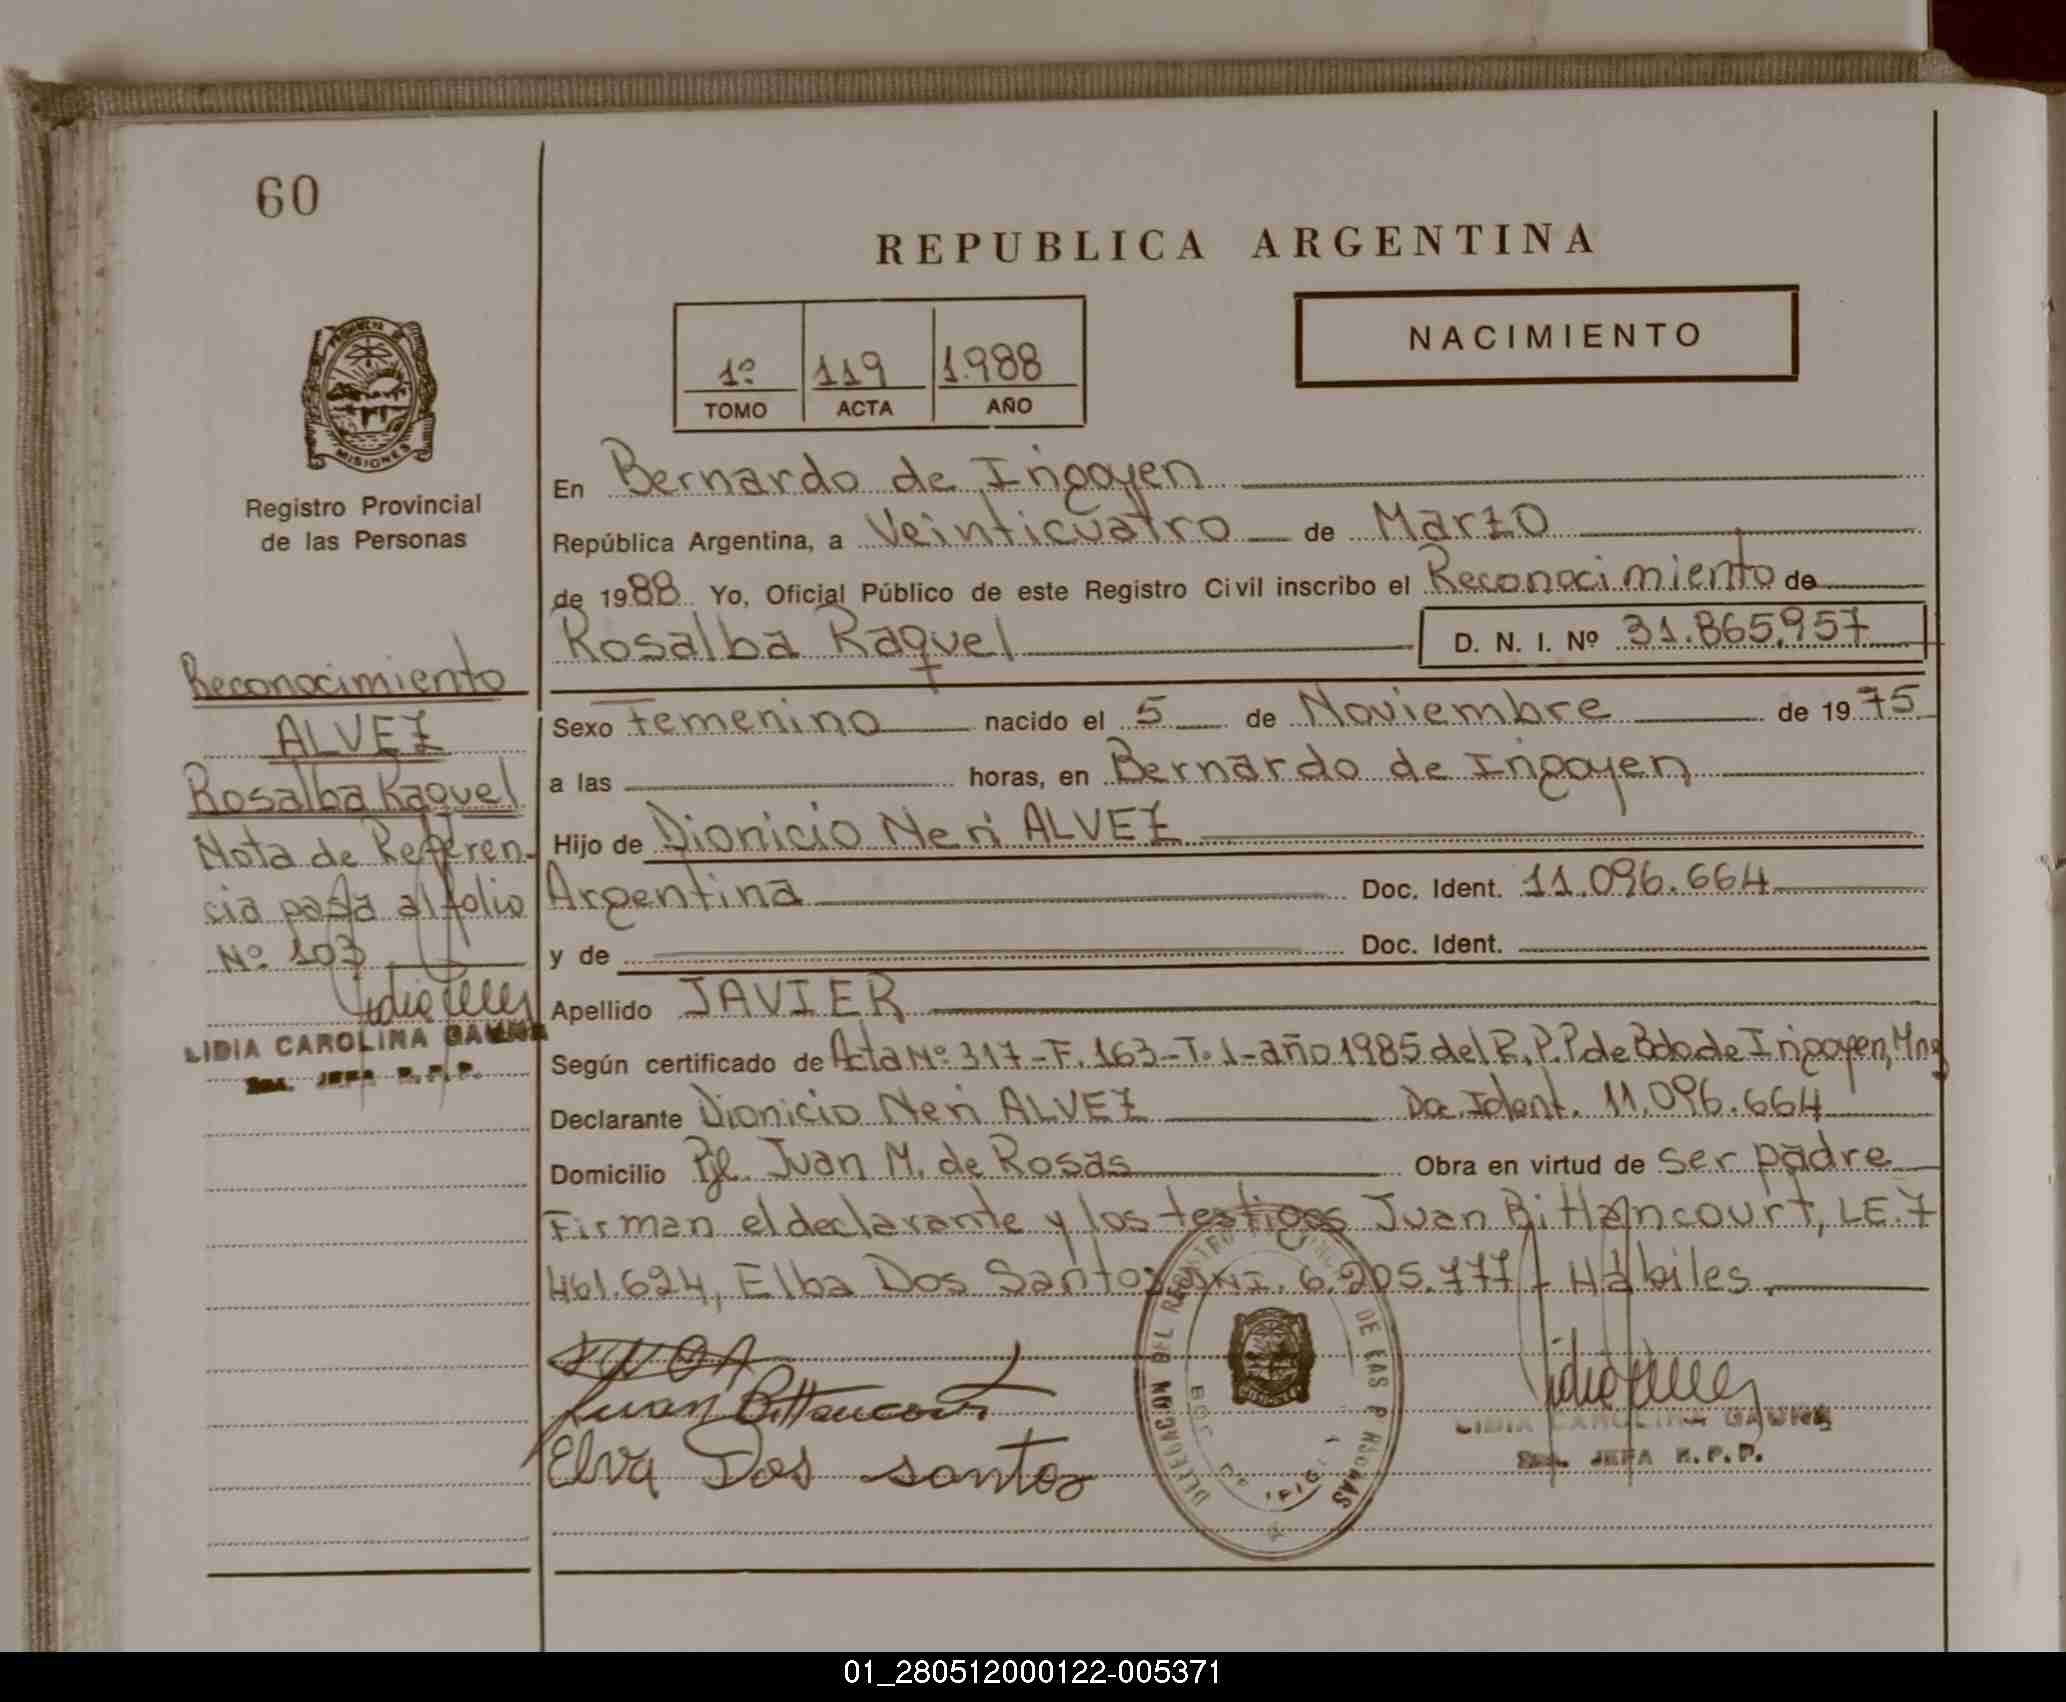 60
REPUBLICA ARGENTINA
NACIMIENTO
1º 119 1.988
TOMO ACTA AÑO
PROVINCIA DE
MISIONES
Registro Provincial
de las Personas
En Bernardo de Irigoyen
República Argentina, a Veinticuatro de Marzo
de 1988 Yo, Oficial Público de este Registro Civil inscribo el Reconocimiento de
Rosalba Raquel D. N. I. Nº 31.865.957
Sexo Femenino nacido el 5 de Noviembre de 1975
a las horas, en Bernardo de Irigoyen
Hijo de Dionicio Neri ALVEZ
Argentina Doc. Ident. 11.096.664
y de Doc. Ident.
Apellido JAVIER
Según certificado de Acta Nº 317-F. 163-T. 1-año 1985 del R.P.P de Bdo de Irigoyen, Mnes
Declarante Dionicio Neri ALVEZ Doc Ident. 11.096.664
Domicilio Pje. Juan M. de Rosas Obra en virtud de ser padre
Firman el declarante y los testigos Juan Bittancourt, LE. 7
461.624, Elba Dos Santos DNI. 6.205.777 - Hábiles
Reconocimiento
ALVEZ
Rosalba Raquel
Nota de Referen-
cia pasa al folio
Nº 103
LIDIA CAROLINA
JEFA R.P.P.
Juan Bittancourt
Elva Dos santos
DELEGACION DEL REGISTRO PROVINCIAL DE LAS PERSONAS
LIDIA CAROLINA
JEFA R.P.P.
01_280512000122-005371